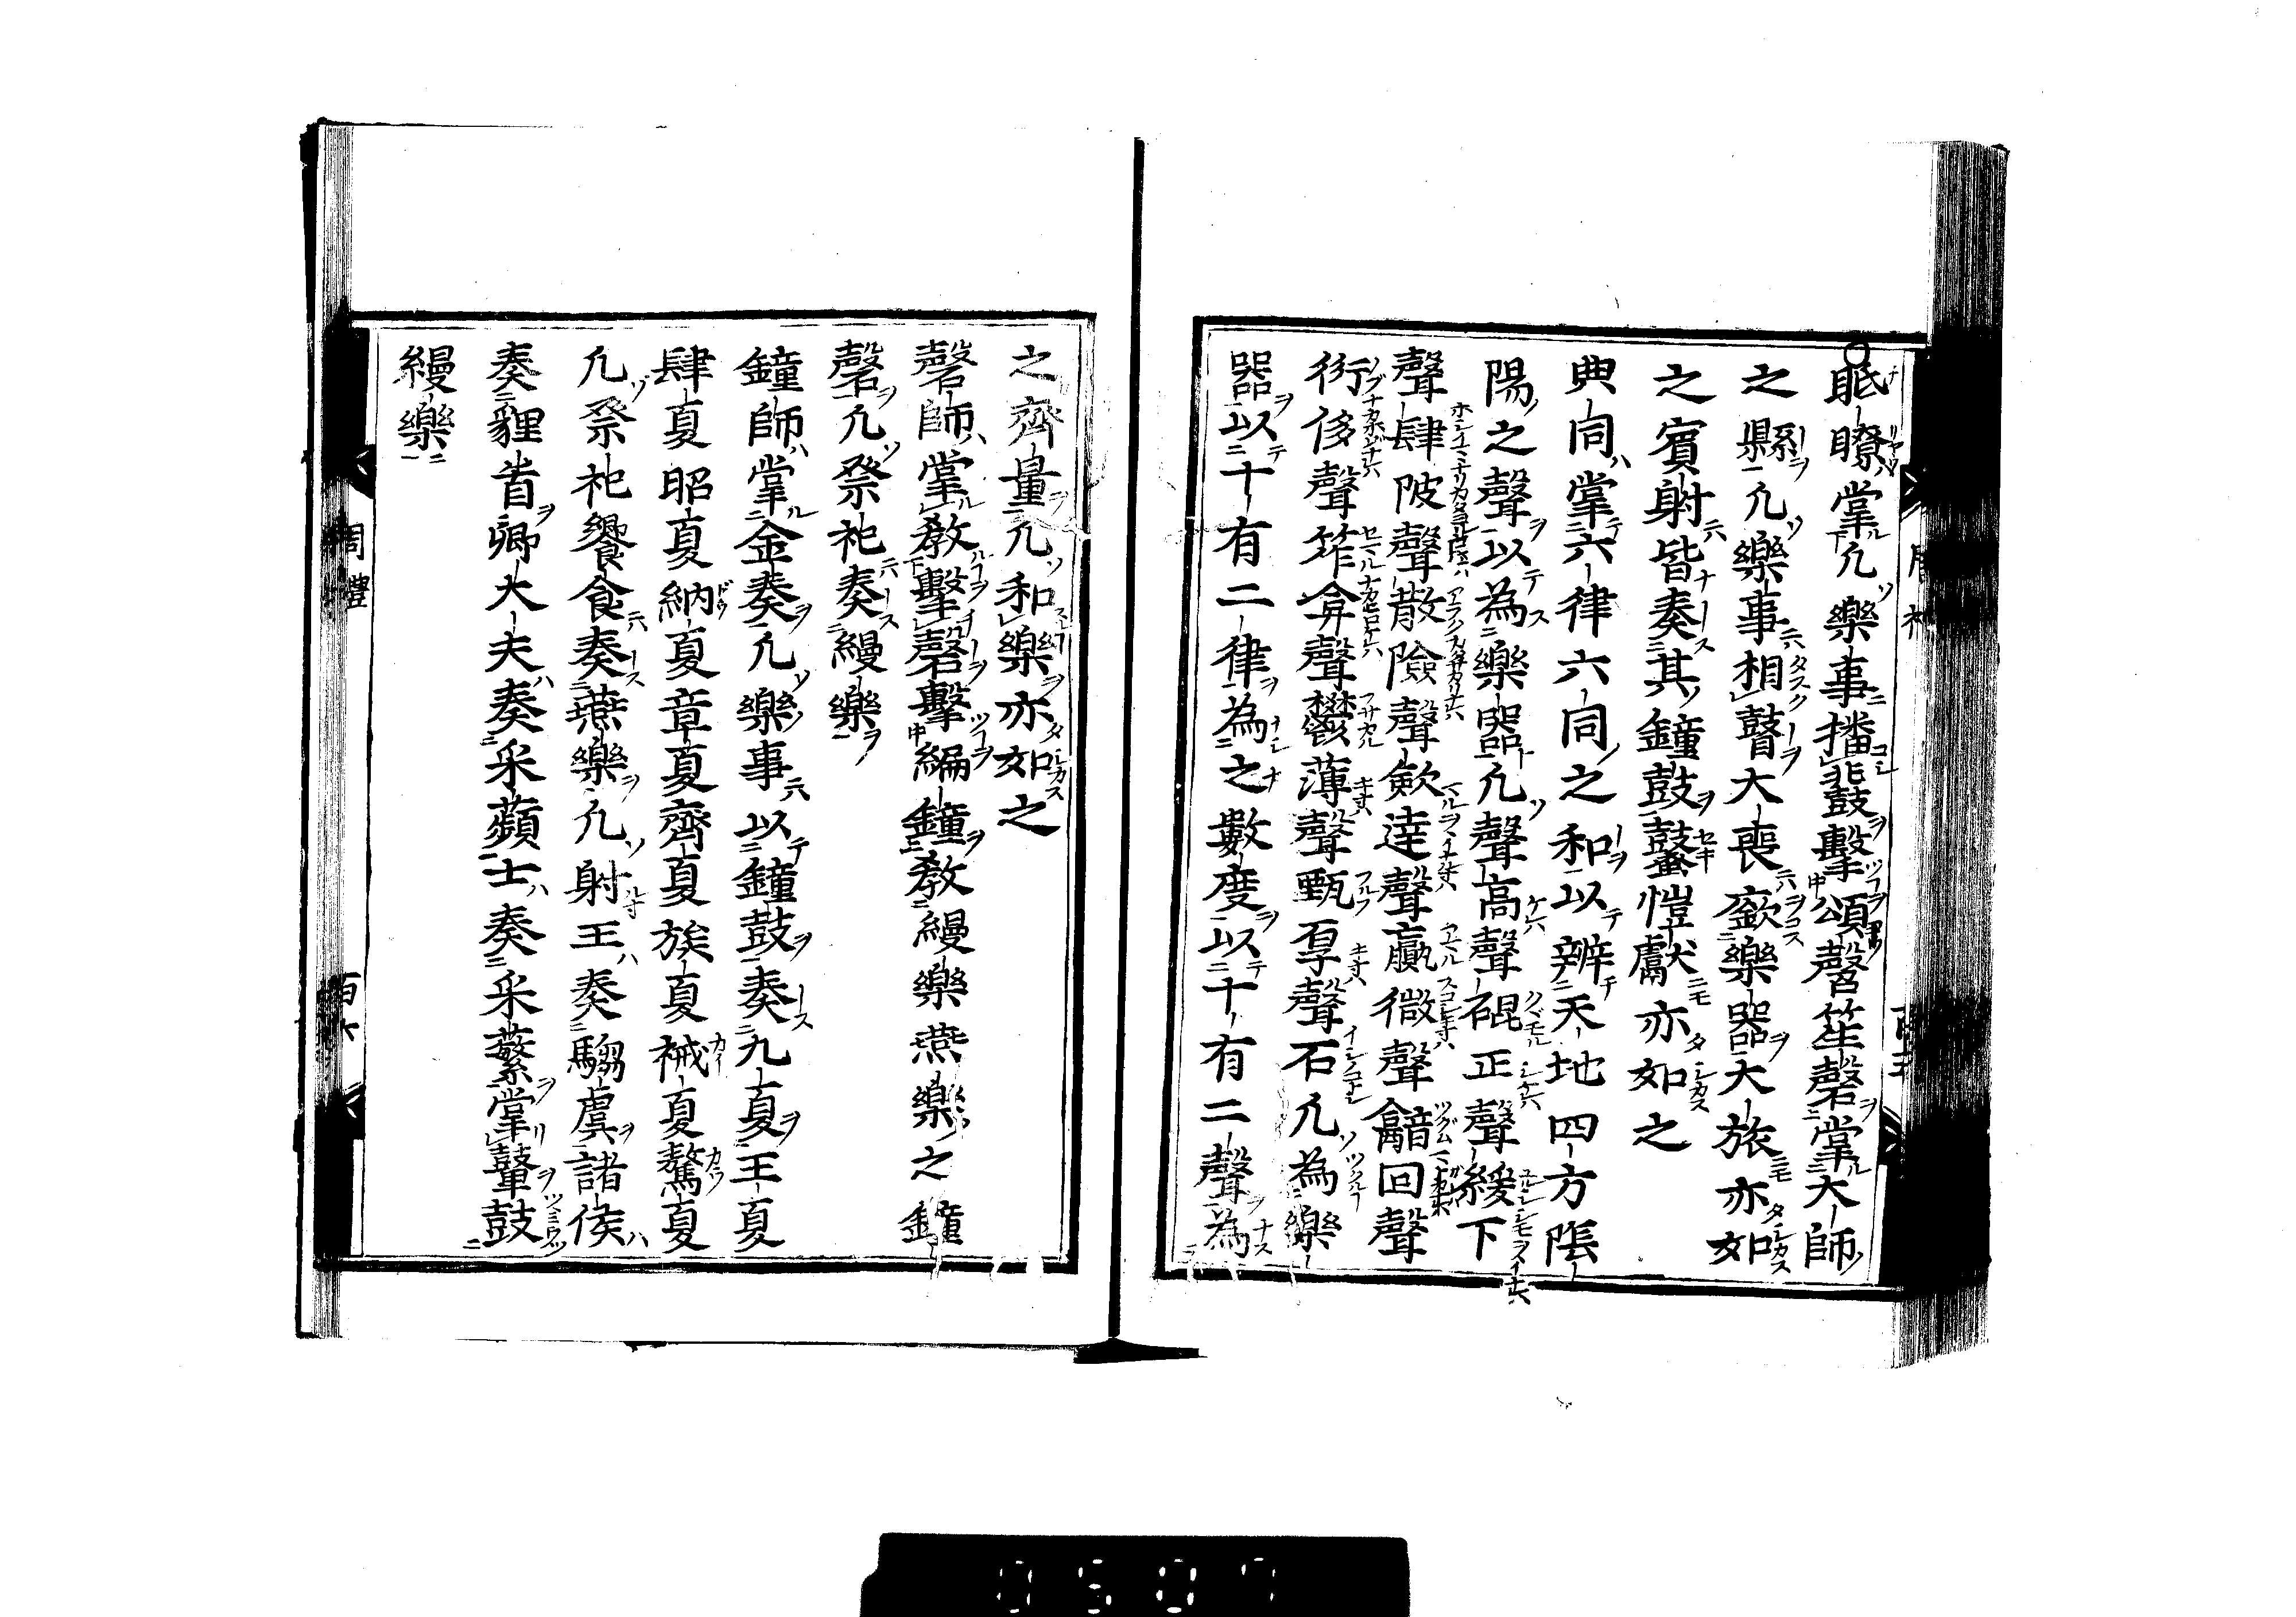 ○眡瞭掌凢樂事播鼗擊頌磬笙磬掌大師
之縣凢樂事相瞽大喪廞樂器大旅亦如
之賓射皆奏其鐘鼓鼜愷獻亦如之
典同掌六律六同之和以辨天地四方陰
陽之聲以為樂器凢聲高聲䃂正聲緩下
聲肆陂聲散險聲歛達聲贏微聲韽回聲
衍侈聲筰弇聲鬱薄聲甄厚聲石凢為樂
器以十有二律為之數度以十有二聲為
之齊量凢和樂亦如之
磬師掌教擊磬擊編鐘教縵樂燕樂之鐘
磬凢祭祀奏縵樂
鐘師掌金奏凢樂事以鐘鼓奏九夏王夏
肆夏昭夏納夏章夏齊夏族夏祴夏驁夏
凢祭祀饗食奏燕樂凢射王奏騶虞諸侯
奏貍首卿大夫奏采蘋士奏采蘩掌鼙鼓
縵樂
周禮
百六
0507